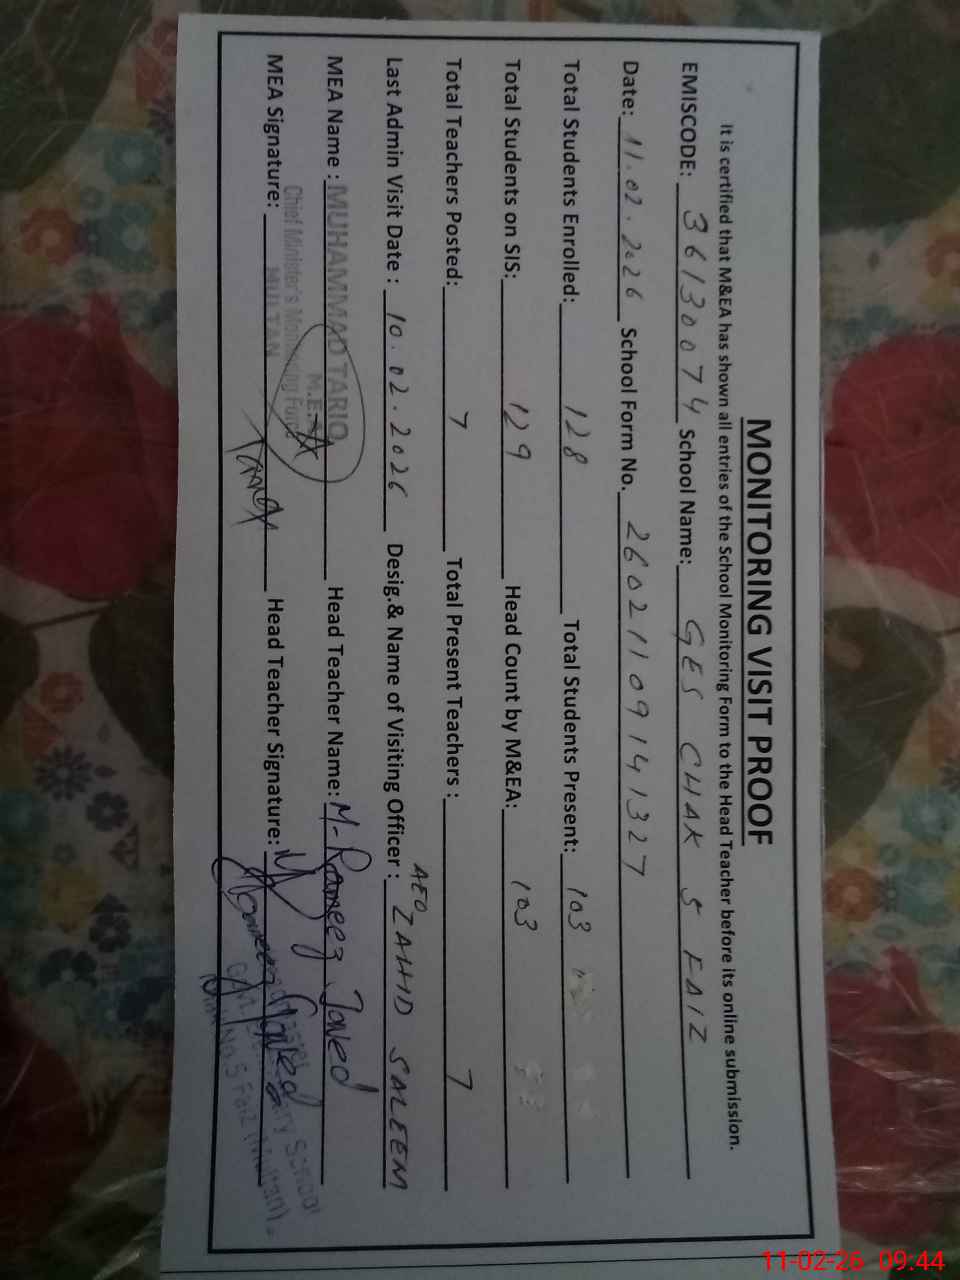 MONITORING VISIT PROOF
It is certified that M&EA has shown all entries of the School Monitoring Form to the Head Teacher before its online submission.
EMISCODE: 36130074 School Name: GES CHAK 5 FAIZ
Date: 11.02.2026 School Form No. 26021109141327
Total Students Enrolled: 128 Total Students Present: 103
Total Students on SIS: 129 Head Count by M&EA: 103
Total Teachers Posted: 7 Total Present Teachers : 7
Last Admin Visit Date : 10.02.2026 Desig.& Name of Visiting Officer : AEO ZAHID SALEEM
MEA Name : MUHAMMAD TARIQ Head Teacher Name: M-Rameez Javed
M.E.A
Chief Minister's Monitoring Force
MEA Signature: MULTAN Head Teacher Signature:
School
No.5 Faiz (Multan).
11-02-26 09:44